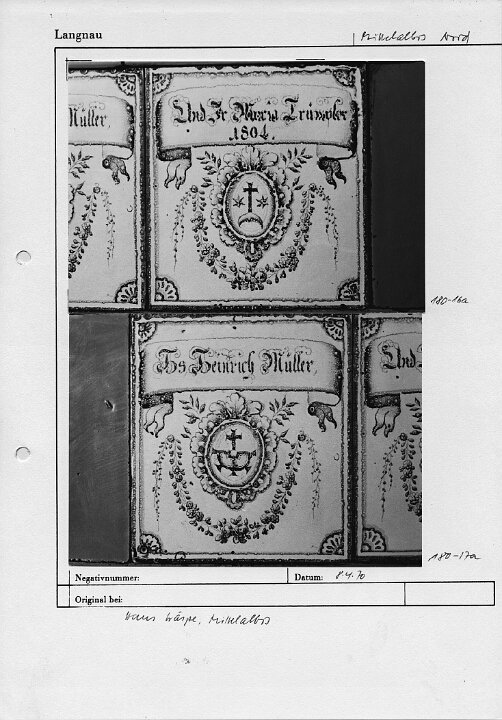 Langnau
Mittelalbis Nord
Müller,
Und Fr Maria Trümpler
1804.
180-16a
Hs Heinrich Müller,
Und
180-17a
Negativnummer:
Datum: 8.4.70
Original bei:
Hans Mittelalbis